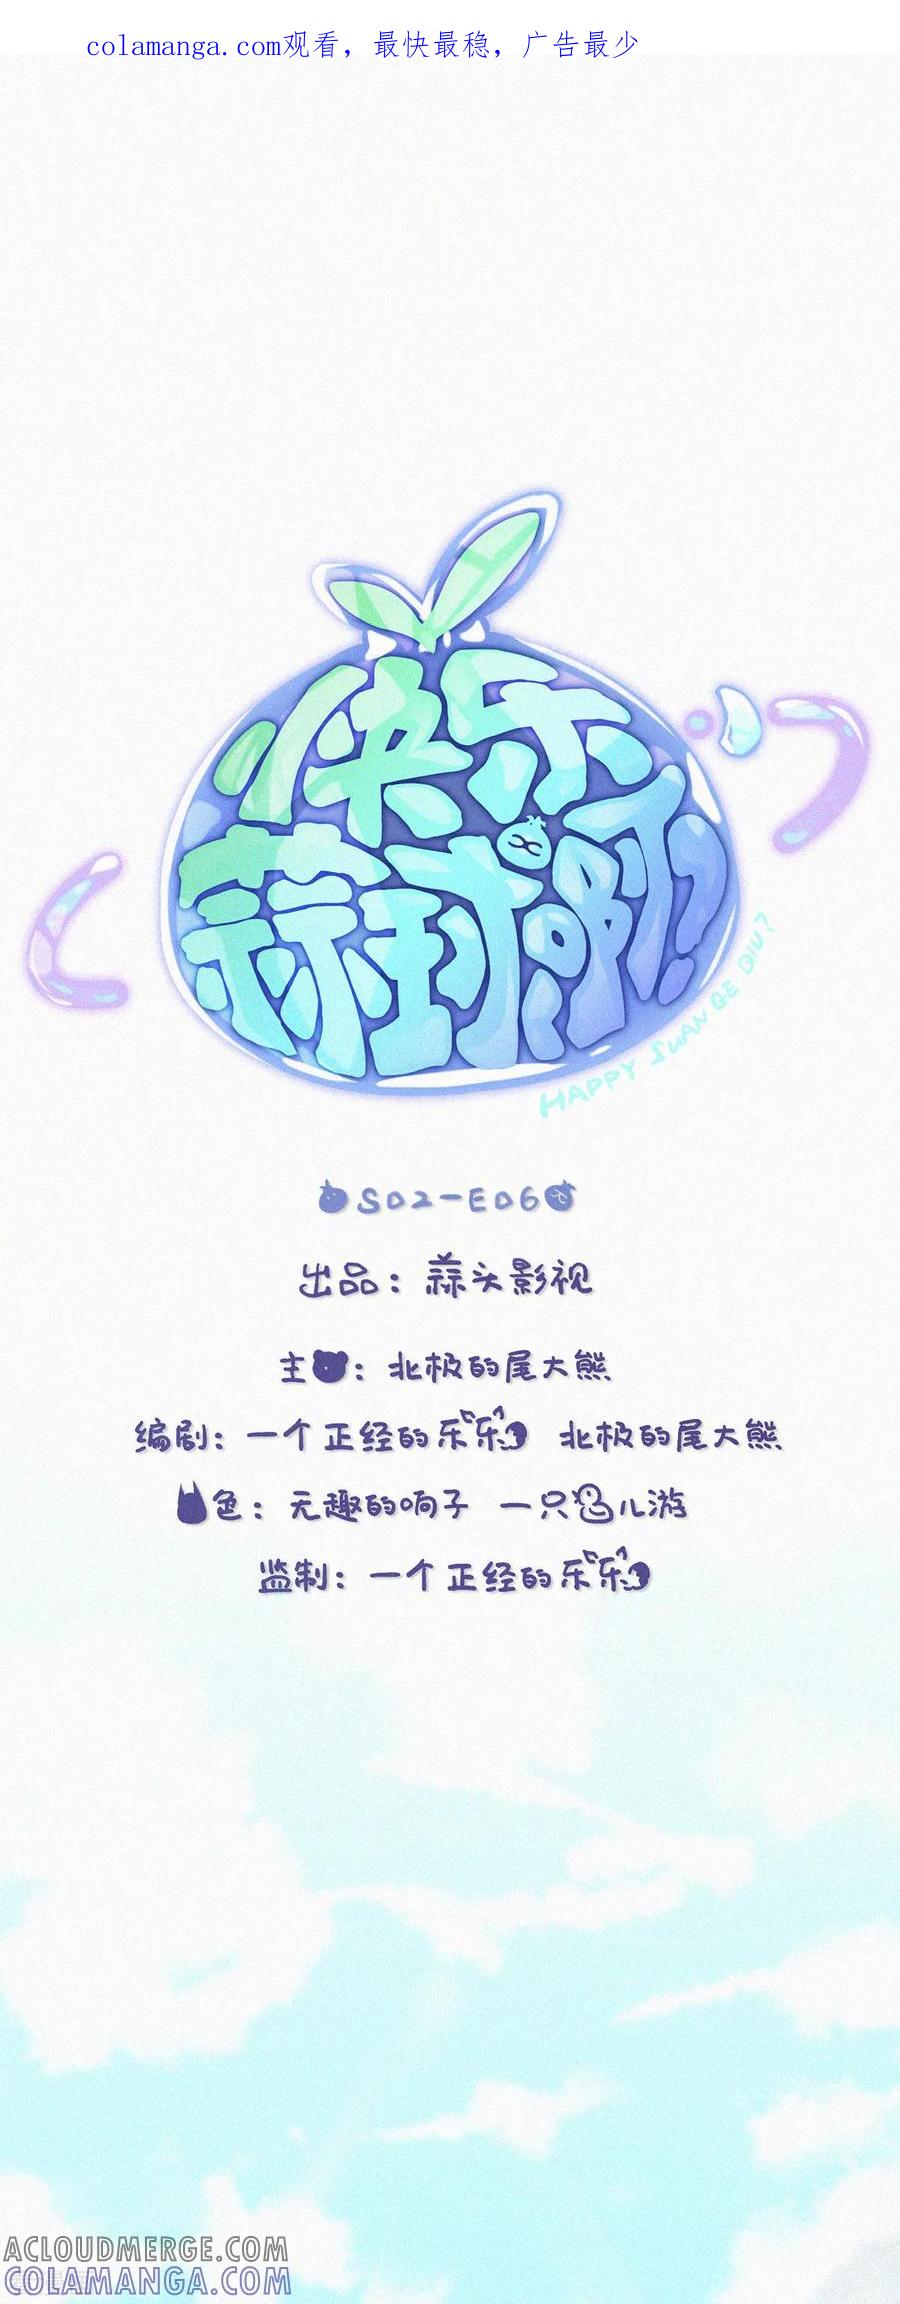 colamanga.com观看，最快最稳，广告最少
快乐
蒜球啊！
HAPPY SUAN GE QIU?
S02-E06
出品：蒜头影视
主：北极的尾大熊
编剧：一个正经的乐乐 北极的尾大熊
色：无趣的响子 一只儿游
监制：一个正经的乐乐
ACLOUDMERGE.COM
COLAMANGA.COM